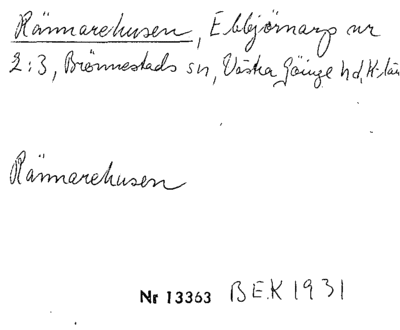 Rännarehusen, Ebbjörnarp nr
2:3, Brönnestads sn, Västra Göinge hd, K-län
Rännarehusen
Nr 13363 BEK 1931